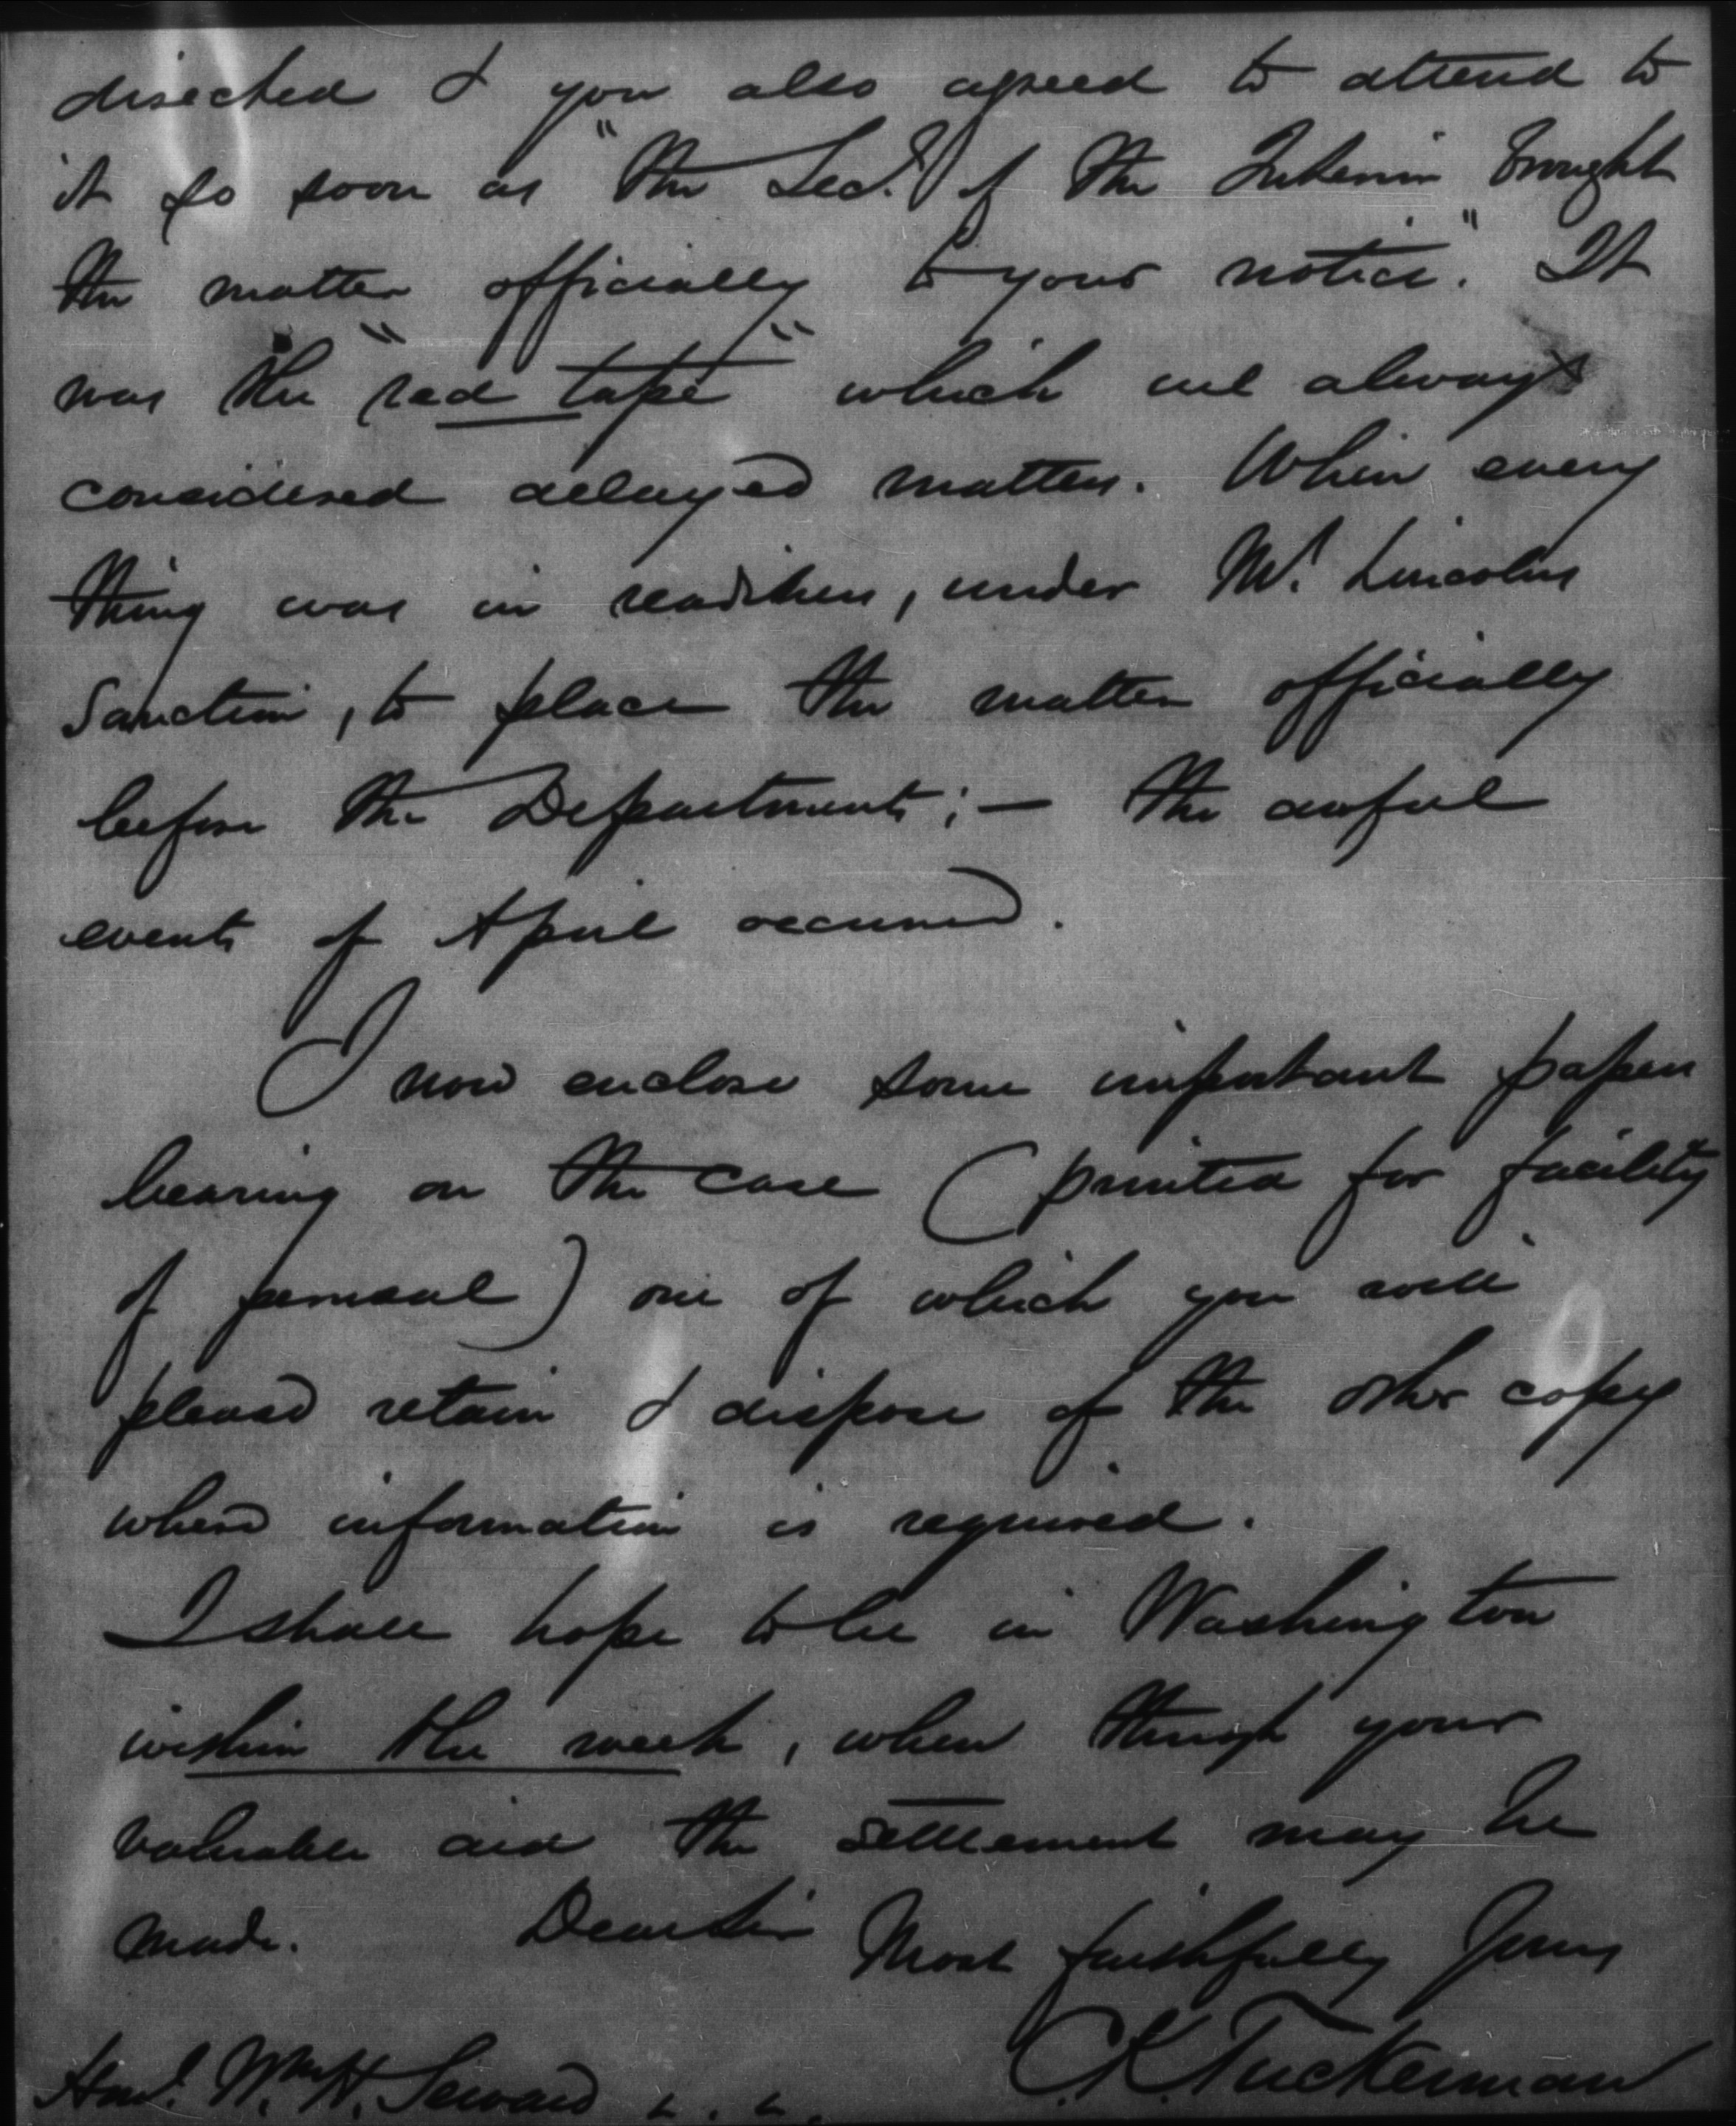 directed & you also agreed to attend to
it so soon as "the Secy of the Interior brought
the matter officially to your notice." It
was the "red tape" which we always
considered delayed matters. When every
thing was in readiness, under Mr. Lincolns
Sanction, to place the matter officially
before the Departments; — the awful
events of April occurred.
I now enclose some important papers
bearing on the case (printed for facility
of perusal) one of which you will
please retain & dispose of the other copy
where information is required.
I shall hope to be in Washington
within the week, when through your
valuable aid the settlement may be
made. Dear Sir Most faithfully Yours
C K Tuckerman
Honl. Wm. H. Seward